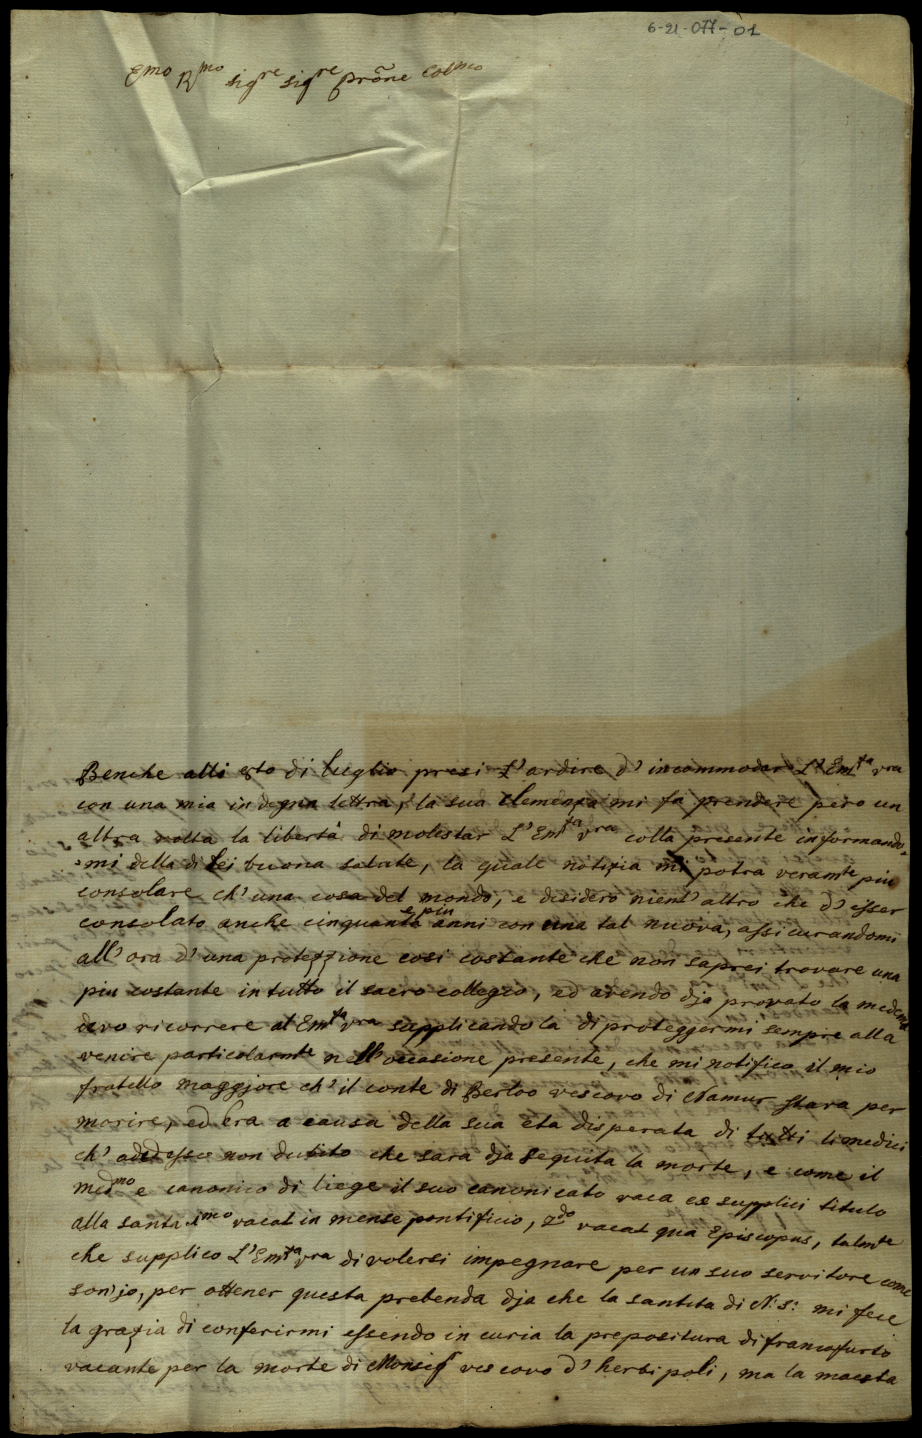 6-21-077-01
Emo Rmo sigre sigre prõne Colmo
Benche alli 8to di luglio presi L'ardire d'incommodar L'Emta vra
con una mia indegna lettra, la sua clemenza mi fa prendere pero un
altra volta la libertà di molestar L'Emta vra colla presente informando=
=mi della di lei buona salute, la quale notizia mi potra veramte piu
consolare ch'una cosa del mondo, e desidero nient'altro che d'esser
consolato anche cinquanta e piu anni con una tal nuova, assicurandomi
all'ora d'una protezzione cosi costante che non saprei trovare una
piu costante in tutto il sacro collegio, ed avendo dja provato la medema
devo ricorrere al Emta vra supplicandola di proteggermi sempre alla
venire particolarmte nell'occasione presente, che mi notifico il mio
fratello maggjore ch'il conte di Berloo vescovo di Namur stara per
morire, ed era a causa della sua eta disperata di tutti li medici
ch' adesso non dubito che sara dja seguita la morte, e come il
medmo e canonico di liege il suo canonicato vaca ex supplici titulo
alla santa 1mo vacat in mense pontificio, 2do vacat qua Episcopus, talmte
che supplico L'Emta vra di volersi impegnare per un suo servitore come
son jo, per ottener questa prebenda dja che la santita di N: S: mi fece
la grazia di conferirmi essendo in curia la prepositura di francofurto
vacante per la morte di Monsigr vescovo d'herbipoli, ma la maesta